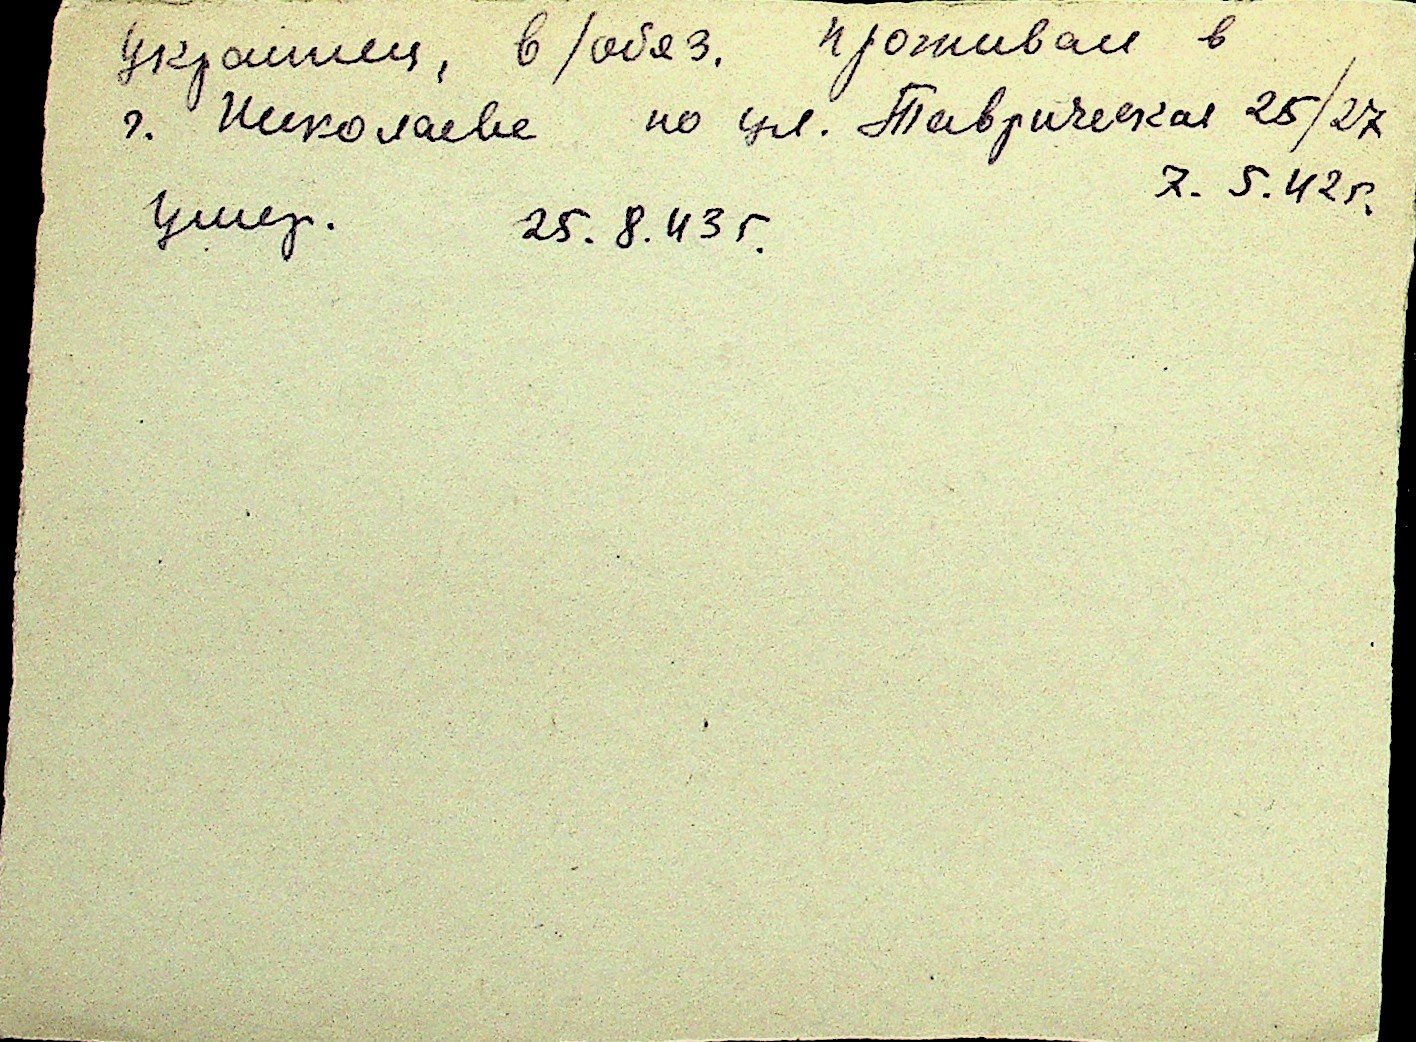 украинец, в/обяз. проживал в
г. Николаеве по ул. Таврическая 25/27
7.5.42г.
Умер. 25.8.43г.